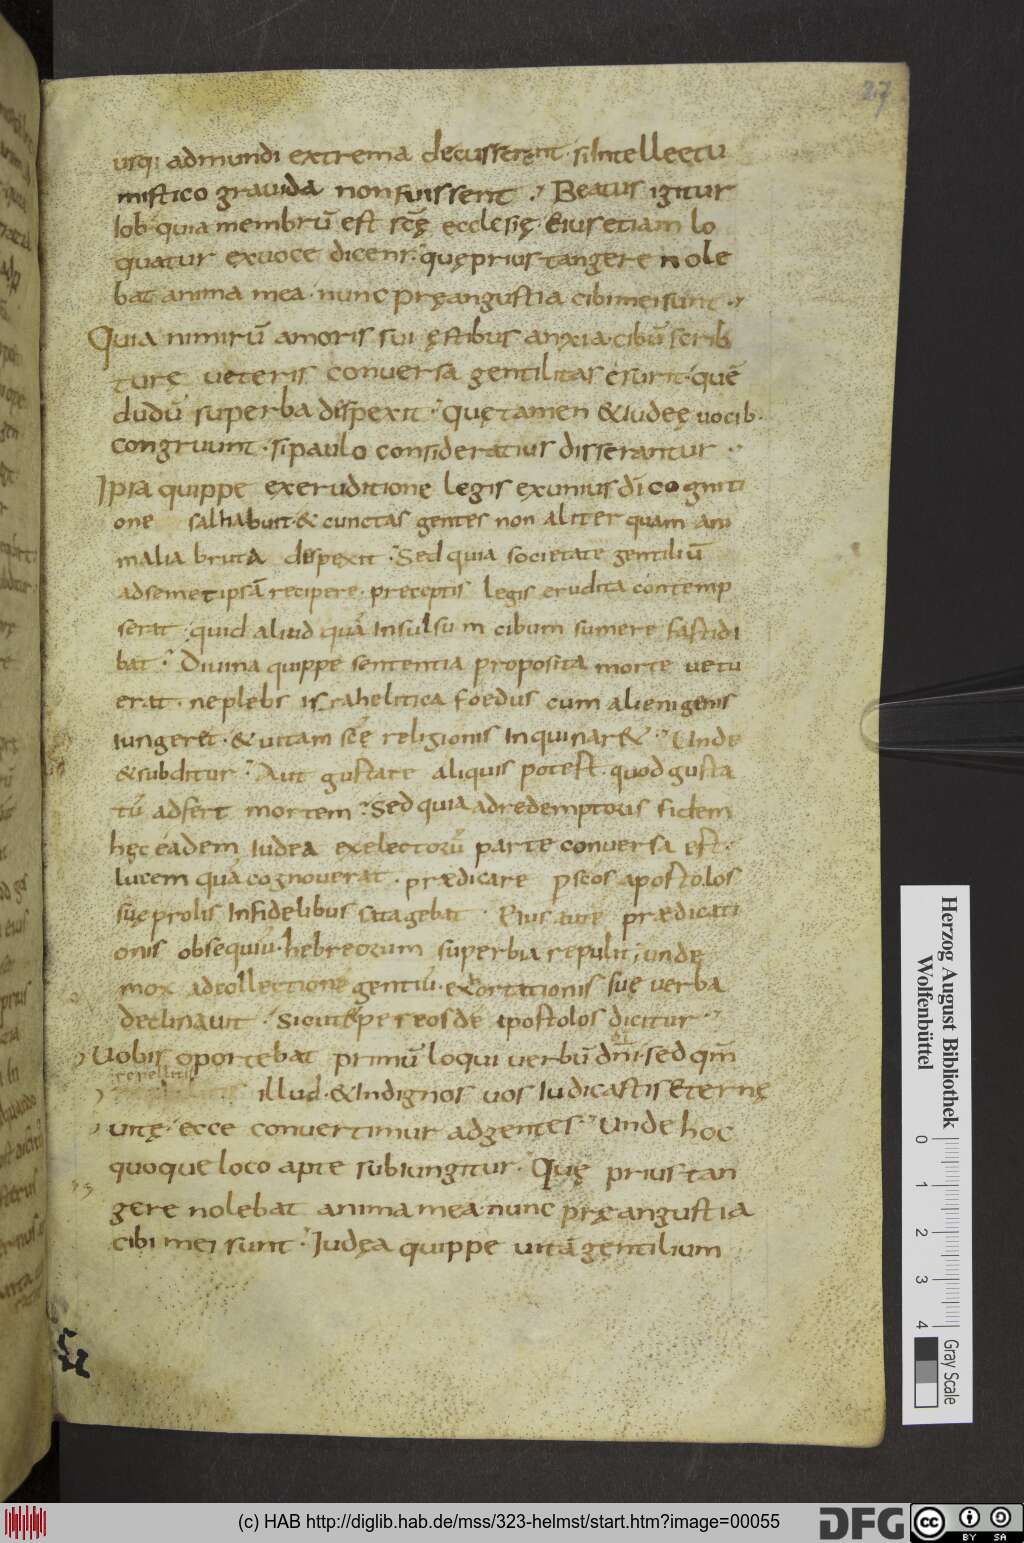 27
usq; ad mundi extrema decusserent. si intellectu
mistico gravida non fuissent. Beatus igitur
Iob. quia membrū est scę ecclesię. Eius etiam lo
quatur ex voce dicens. quę prius tangere nole
bat anima mea. nunc pręangustia cibi mei sunt.
Quia nimirū amoris sui ęstibus anxia. cibū scrib
turę veteris conversa gentilitas esurit. quē
dudū superba despexit. Quę tamen & iudeę vocib.
congruunt. si paulo consideratius disserantur.
Ipsa quippe ex eruditione legis ex unius dī cogniti
one sal habuit. & cunctas gentes non aliter quam ani
malia bruta despexit. Sed quia societate gentiliū
ad semetipsā recipere. preceptis legis erudita contemp
serat. quid aliud quā insulsum cibum sumere fastidi
bat. Divina quippe sententia proposita morte vetu
erat. ne plebs israhelitica foedus cum alienigenis
iungeret. & vitam scē religionis inquinar&. Unde
& subditur. Aut gustare aliquis potest. quod gusta
tū adfert mortem. Sed quia ad redemptoris fidem
hęc eadem iudea ex electorū parte conversa est.
lucem quā cognoverat. prædicare p scōs apostolos
suę prolis infidelibus satagebat. Eius autē prædicati
onis obsequiū. hebreorum superbia repulit; unde
mox ad collectionē gentiū. exhortationis suę verba
declinavit. Sicut & per eosdē apostolos dicitur.
Vobis oportebat primū loqui verbū dnī. sed qm̄
repellitis
illud. & indignos vos iudicastis eternę
vitę. ecce convertimur ad gentes. Unde hoc
quoque loco apte subiungitur. Quę prius tan
gere nolebat anima mea. nunc pręangustia
cibi mei sunt. Iudęa quippe vitā gentilium
Herzog August Bibliothek
Wolfenbüttel
0 1 2 3 4
Gray Scale
(c) HAB http://diglib.hab.de/mss/323-helmst/start.htm?image=00055
DFG
cc BY SA